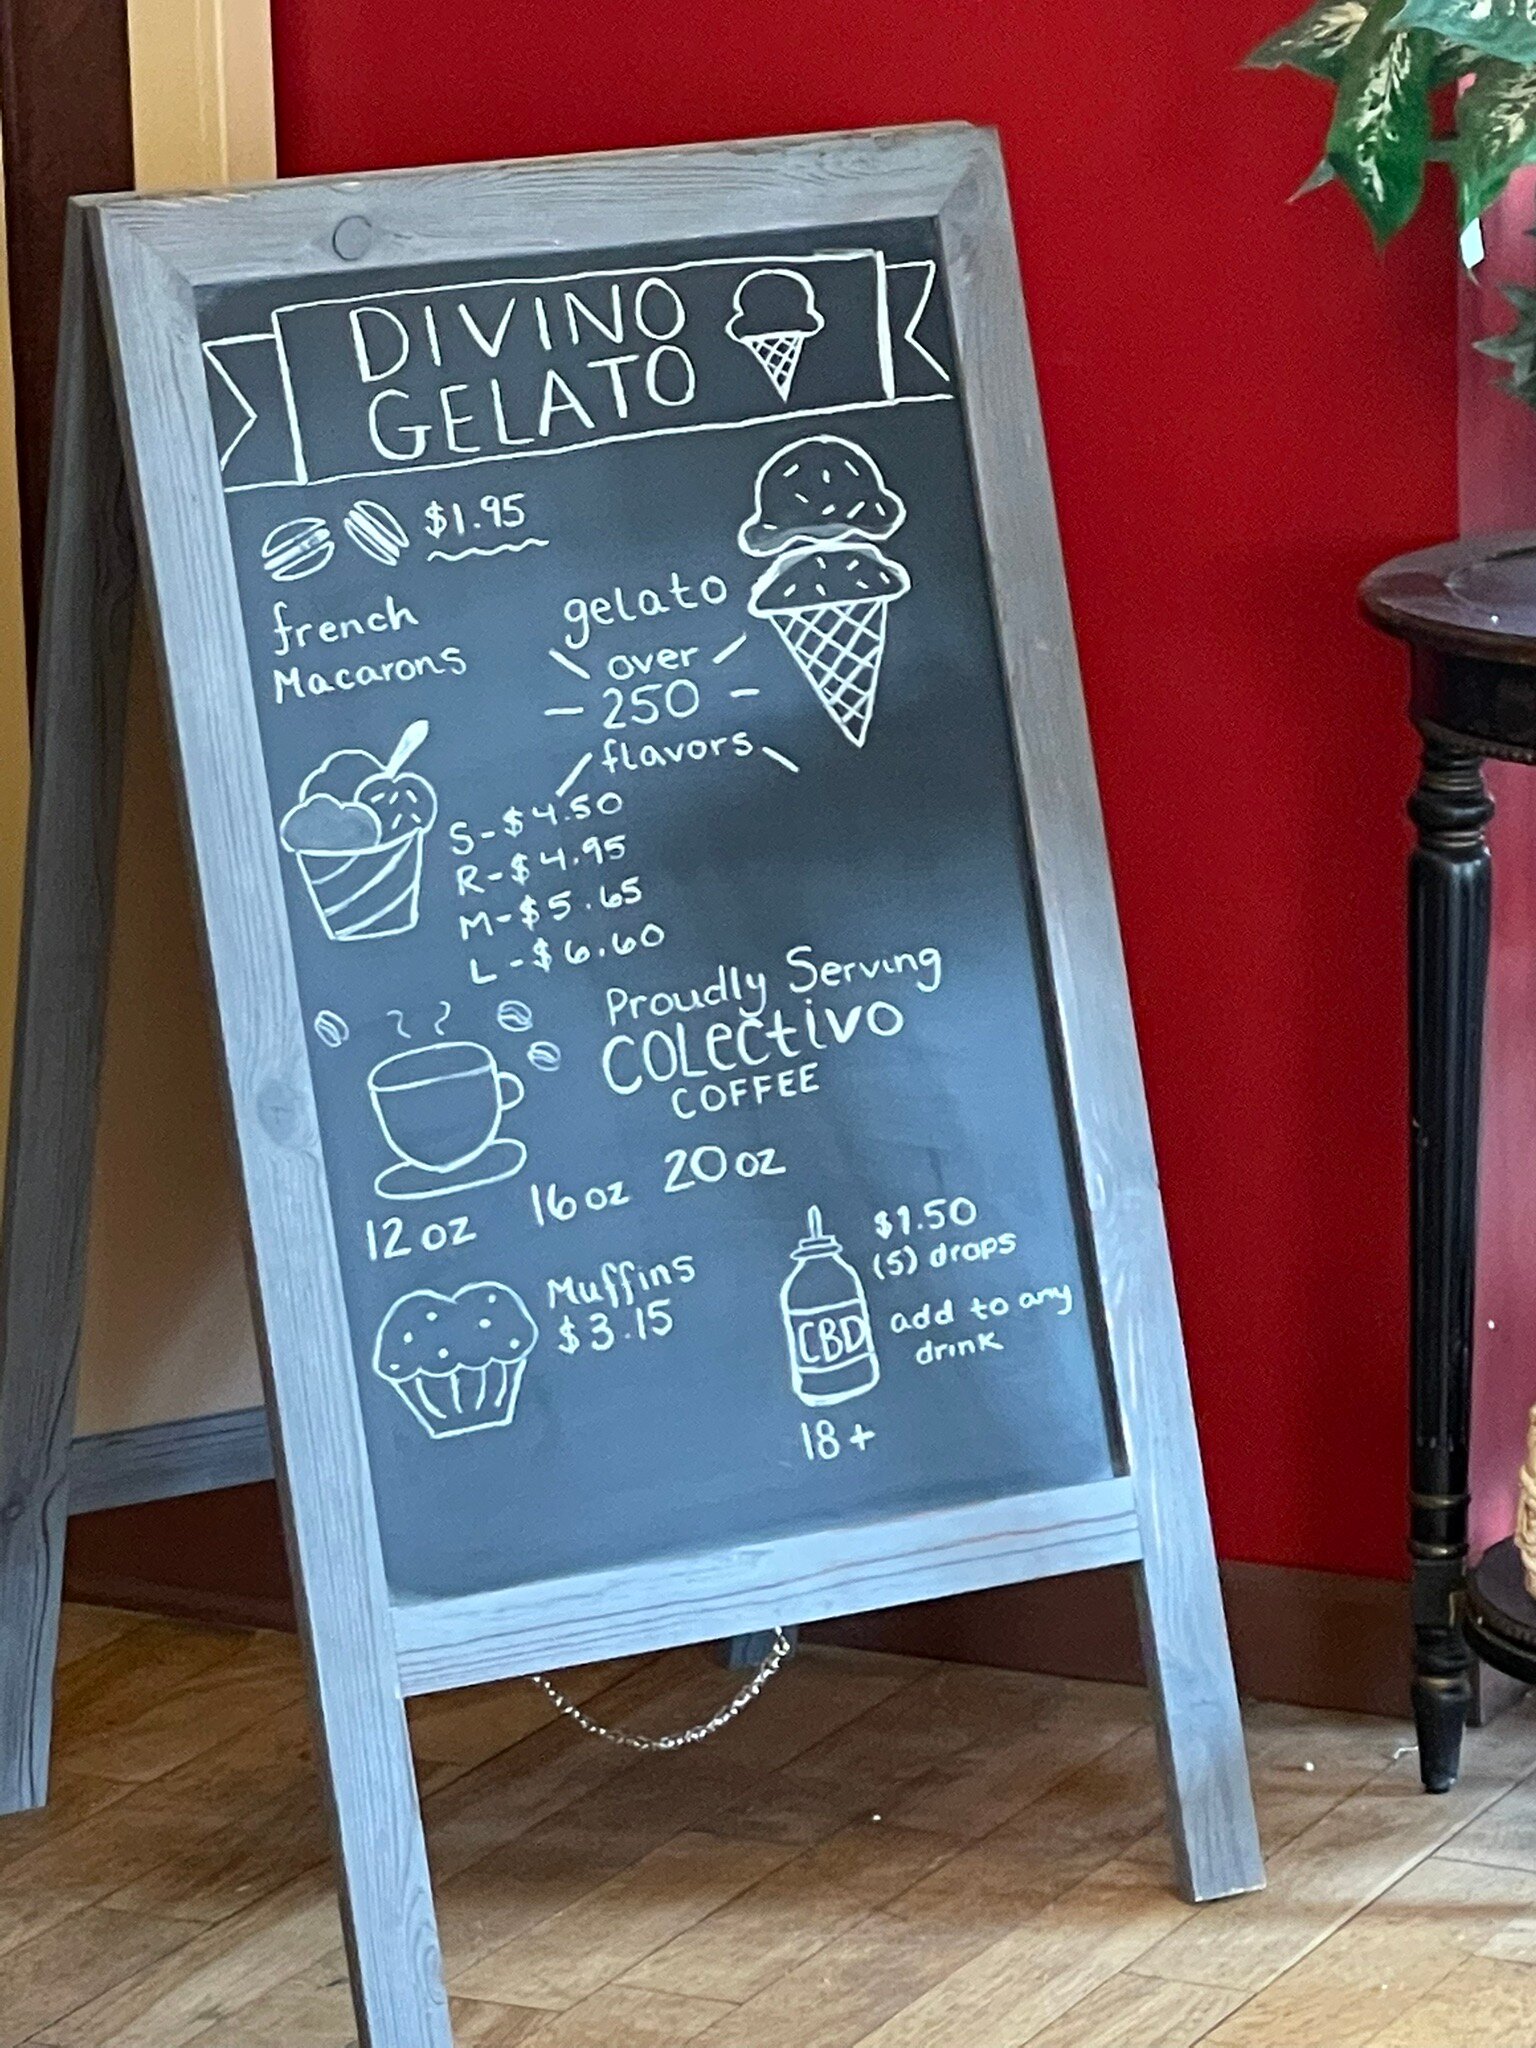 DIVINO
GELATO
$1.95
french
Macarons
gelato
over
250
flavors
S-$4.50
R-$4.95
M-$5.65
L-$6.60
Proudly Serving
COLectivo
COFFEE
12oz 16oz 20oz
Muffins
$3.15
CBD
$1.50
(5) drops
add to any
drink
18+